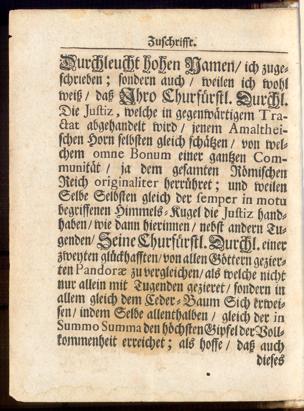 Zuschrifft.
Durchleucht hohen Namen / ich zuge-
schrieben ; sondern auch / weilen ich wohl
weiß / daß Ihro Churfürstl. Durchl.
Die Justiz, welche in gegenwärtigem Tra-
ctat abgehandelt wird / jenem Amalthei-
schen Horn selbsten gleich schätzen / von wel-
chem omne Bonum einer gantzen Com-
munität / ja dem gesamten Römischen
Reich originaliter herrühret ; und weilen
Selbe Selbsten gleich der semper in motu
begriffenen Himmels-Kugel die Justiz hand-
haben / wie dann hierinnen / nebst andern Tu-
genden / Seine Churfürstl. Durchl. einer
zweyten glückhafften / von allen Göttern gezier-
ten Pandoræ zu vergleichen / als welche nicht
nur allein mit Tugenden gezieret / sondern in
allem gleich dem Ceder-Baum Sich erwei-
sen / indem Selbe allenthalben / gleich der in
Summo Summa den höchsten Gipfel der Voll-
kommenheit erreichet ; als hoffe / daß auch
dieses